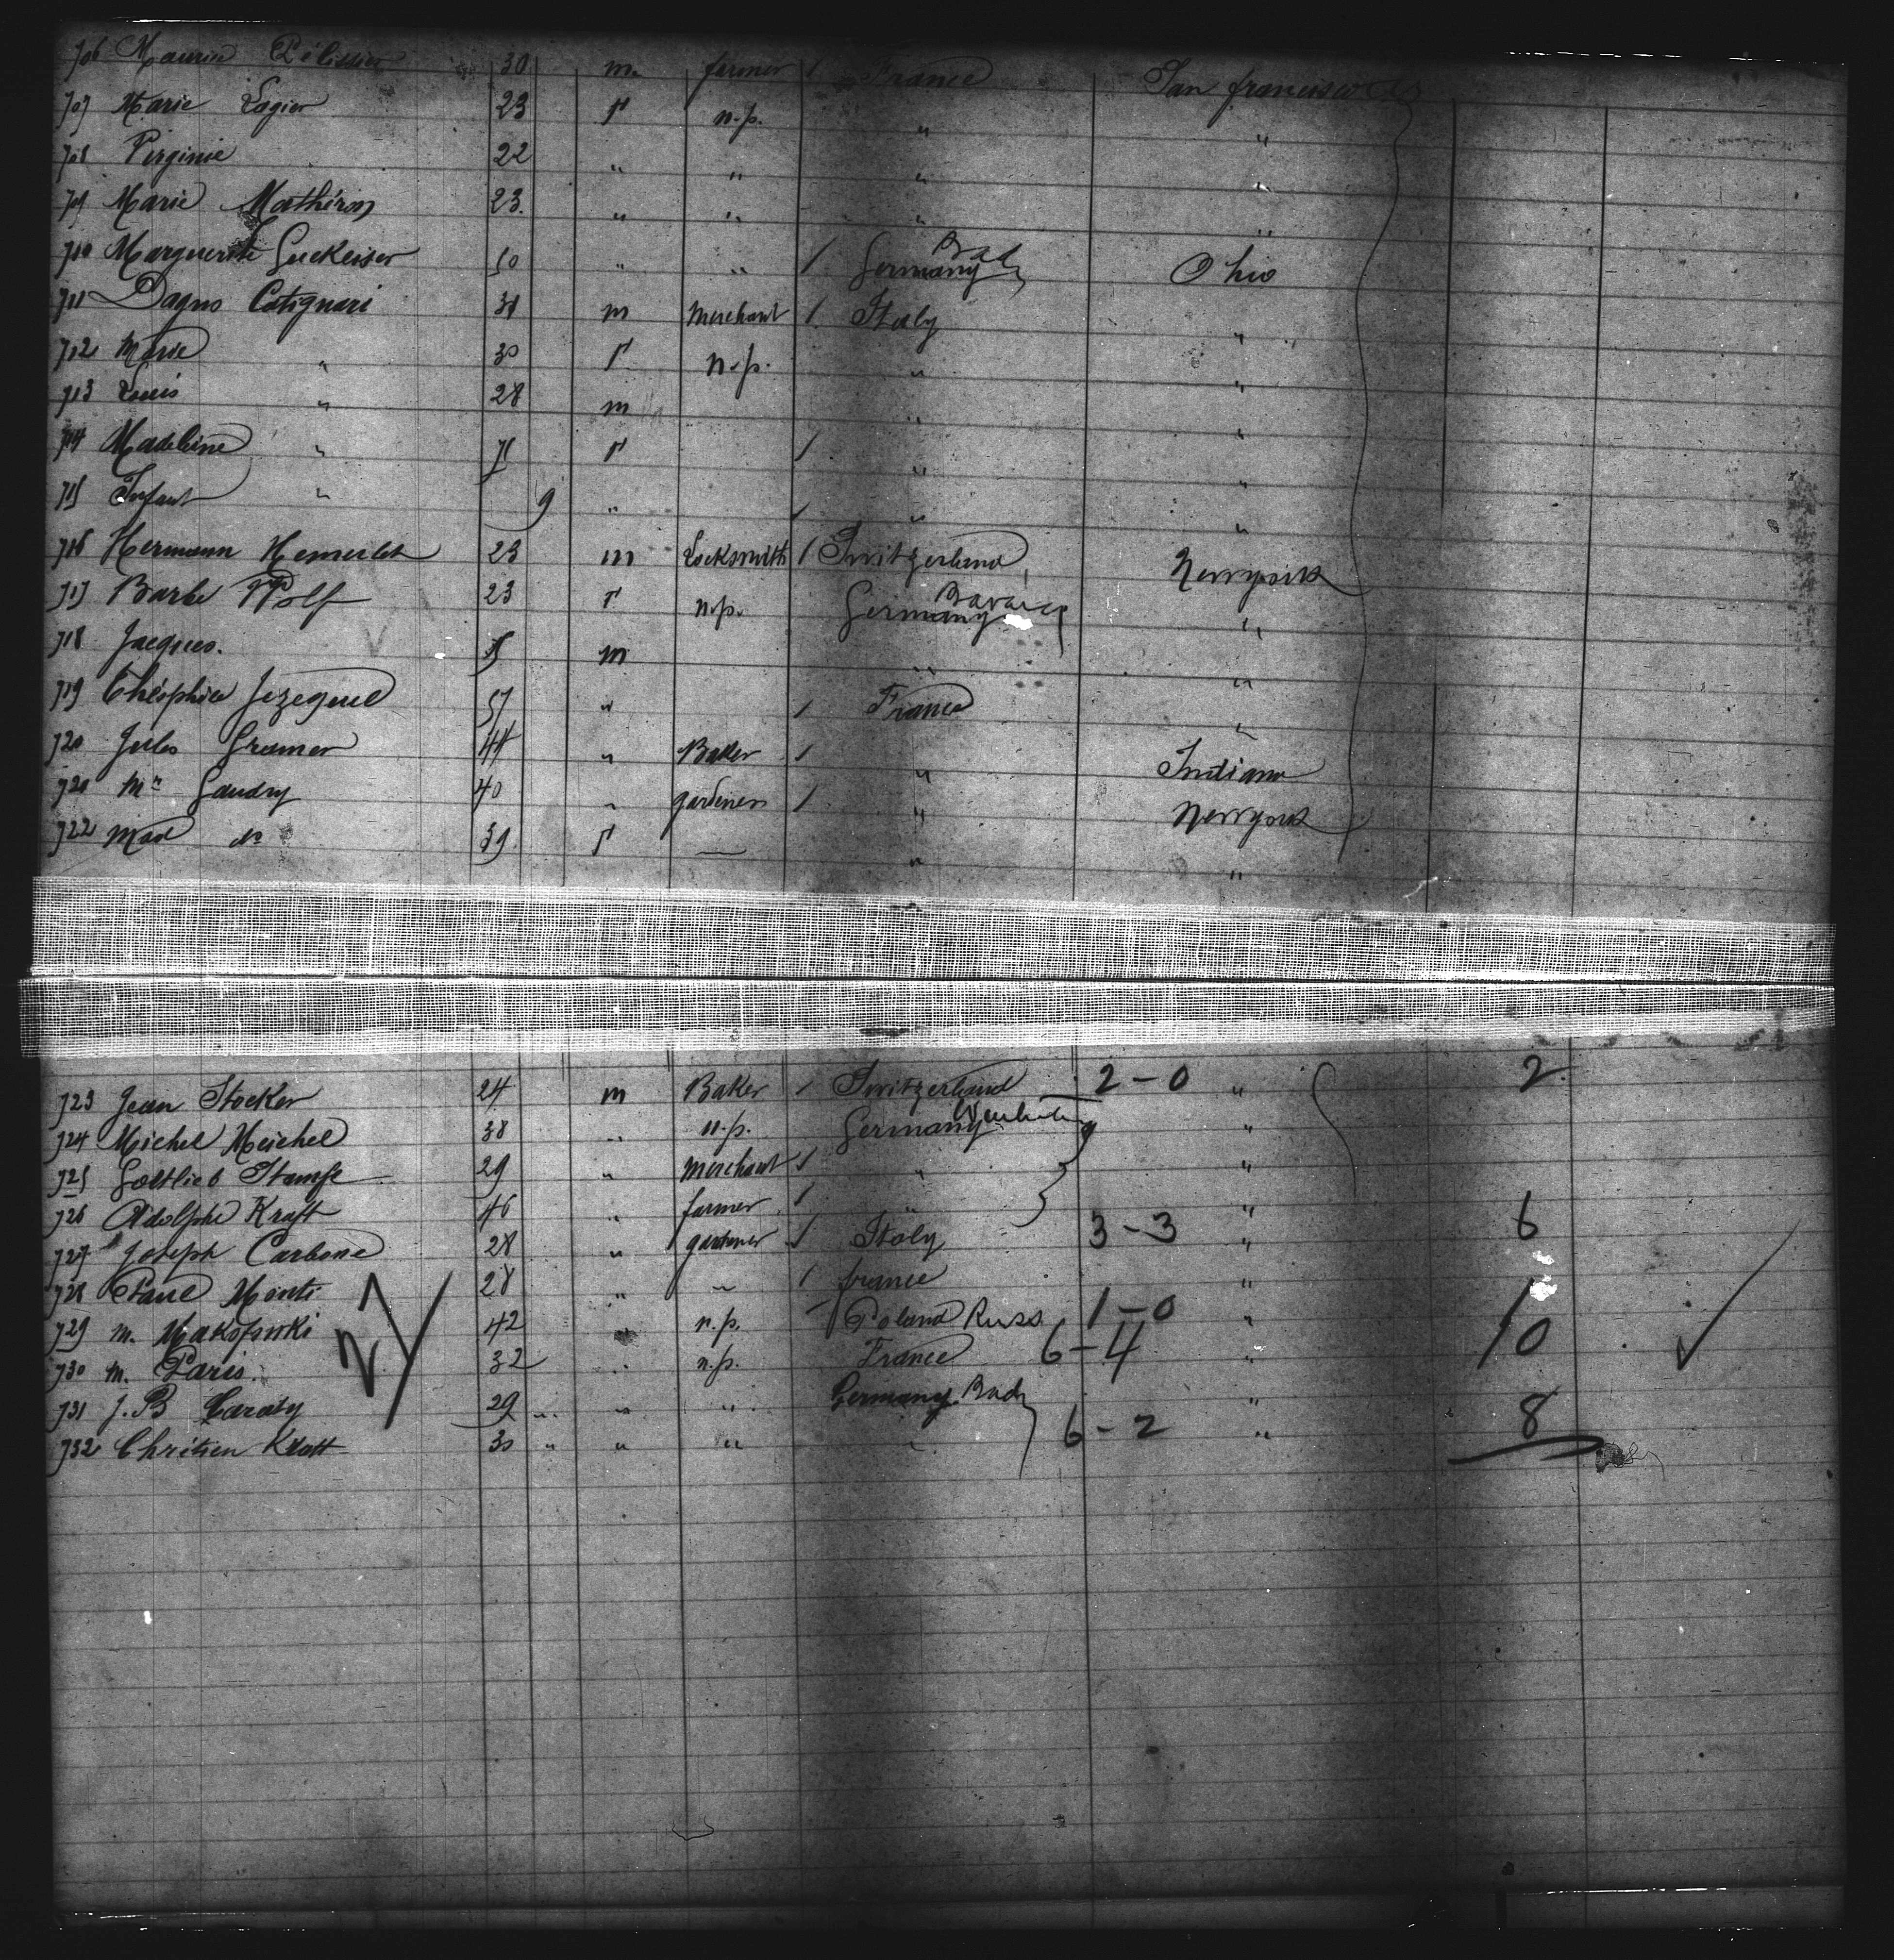 706 Maurice Pélissier 30 m. farmer / France San francisco
707 Marie Lagier 23 f n.p. " "
708 Virginie 22 " " " "
709 Marie Mathéron 23. " " " "
710 Marguerite Guckeiser 50 " " / Germany Bad Ohio
711 Dagno Cotignari 31 m Merchant / Italy "
712 Marie " 30 f n.p. " "
713 Louis " 28 m " "
714 Madeleine " f / " "
715 Infant " 9 " / " "
716 Hermann 23 m Locksmith / Switzerland Newyork
717 Barbe Wolf 23 f n.p. Germany Bavaria "
718 Jacques. m " "
719 Théophile Jezequel 57 " / France "
720 Jules Gramer 44 " Baker / " Indiana
720 Mr Gaudry 40 " gardener / " Newyork
722 Mad do 39. f — " "
723 Jean Stocker 24 m Baker / Switzerland 2-0 " 2
724 Michel Meichel 38 " n.p. Germany "
725 Gottlieb Stampf 29 " Merchant / " "
726 Adolphe Kraft 46 " farmer / " "
727 Joseph Carbone 28 " gardener / Italy 3-3 " 6
728 Paul Monti 28 " " / france "
729 m. Makofski 42 " n.p. Poland Russ 1-0 " 1
730 m. Paris. 32 " n.p. France 6-4 " 10
731 J. B Caraty 29 " " " Germany Bad "
732 Chrétien Kraft 30 " " " " 6-2 " 8